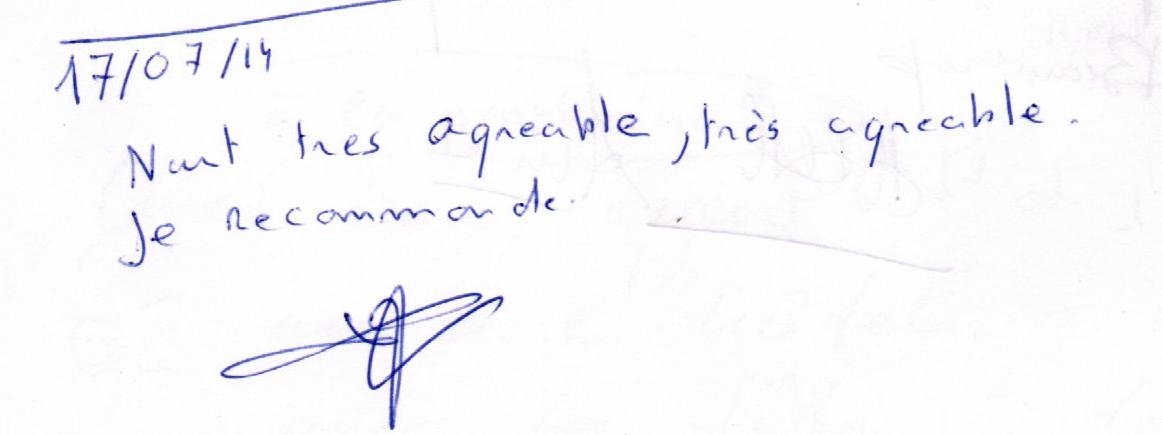 17/07/14
Nuit tres agreable, très agreable.
Je recommande.